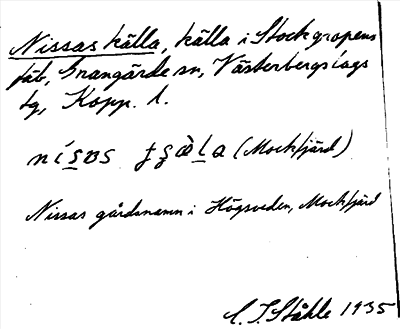 Nissas källa, källa i Stockgropens
fäb, Grangärde sn, Västerbergslags
tg, Kopp. l.
(Mockfjärd)
Nissas gårdsnamn i Högsveden, Mockfjärd
C. I. Ståhle 1935